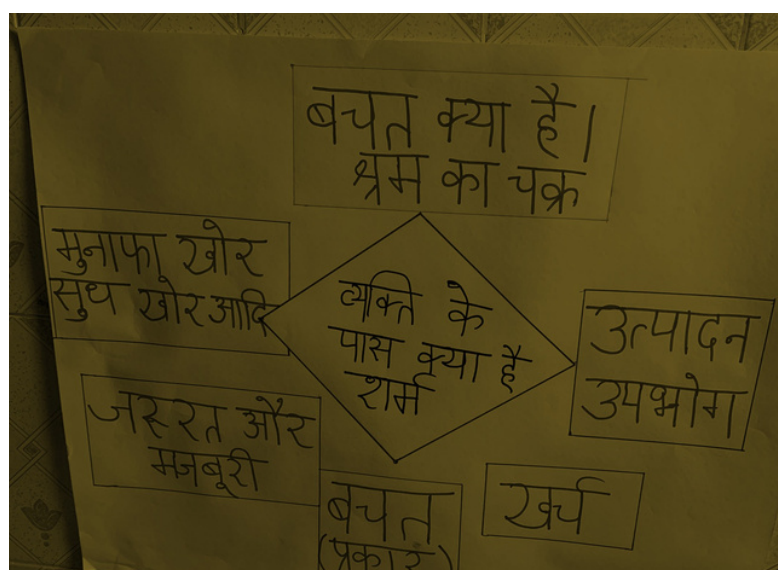 बचत क्या है।
श्रम का चक्र
मुनाफा खोर
सुध खोर आदि
व्यक्ति के
पास क्या है
शर्म
उत्पादन
उपभोग
जरूरत और
मजबूरी
बचत
(प्रकार)
खर्च